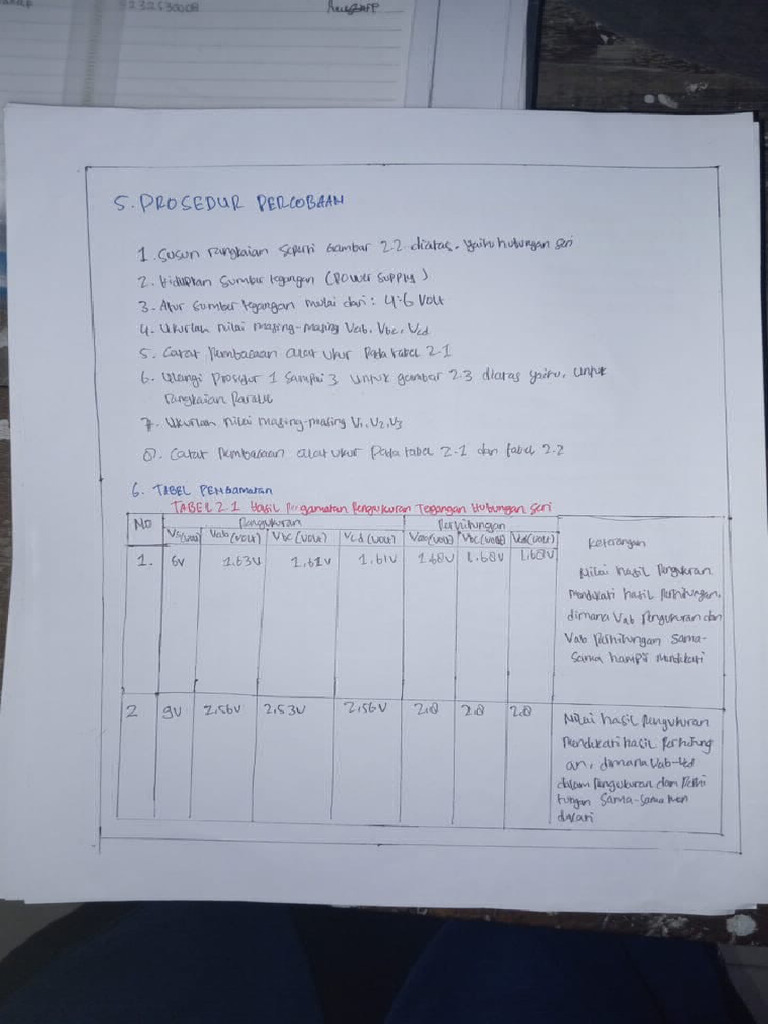 5. PROSEDUR PERCOBAAN
1. Susun rangkaian seperti Gambar 2.2 diatas. yaitu hubungan seri
2. Hidupkan sumber tegangan (power supply)
3. Atur sumber tegangan mulai dari: 4-6 Volt
4. Ukurlah nilai masing-masing Vab, Vbc, Vcd
5. Catat pembacaan alat ukur pada tabel 2-1
6. Ulangi Prosedur 1 sampai 3 untuk gambar 2.3 diatas yaitu, untuk
rangkaian Paralel
7. Ukurlah nilai masing-masing V1, V2, V3
8. Catat pembacaan alat ukur pada tabel 2-1 dan tabel 2-2
6. TABEL PENGAMATAN
TABEL 2.1 Hasil Pengamatan Pengukuran Tegangan Hubungan Seri
No Pengukuran Perhitungan Keterangan
Vs(volt) Vab(volt) Vbc(volt) Vcd(volt) Vab(volt) Vbc(volt) Vcd(volt)
1. 6V 1.63V 1,61V 1.61V 1.68V 1.68V 1.68V
Nilai hasil Pengukuran
mendekati hasil Perhitungan,
dimana Vab Pengukuran dan
Vab Perhitungan sama-
sama hampir mendekati
2 9V 2,56V 2,53V 2,56V 2,8 2.8 2.8
Nilai hasil Pengukuran
mendekati hasil Perhitung
an, dimana Vab-Vcd
dalam Pengukuran dan Perhi
tungan sama-sama men
dekati